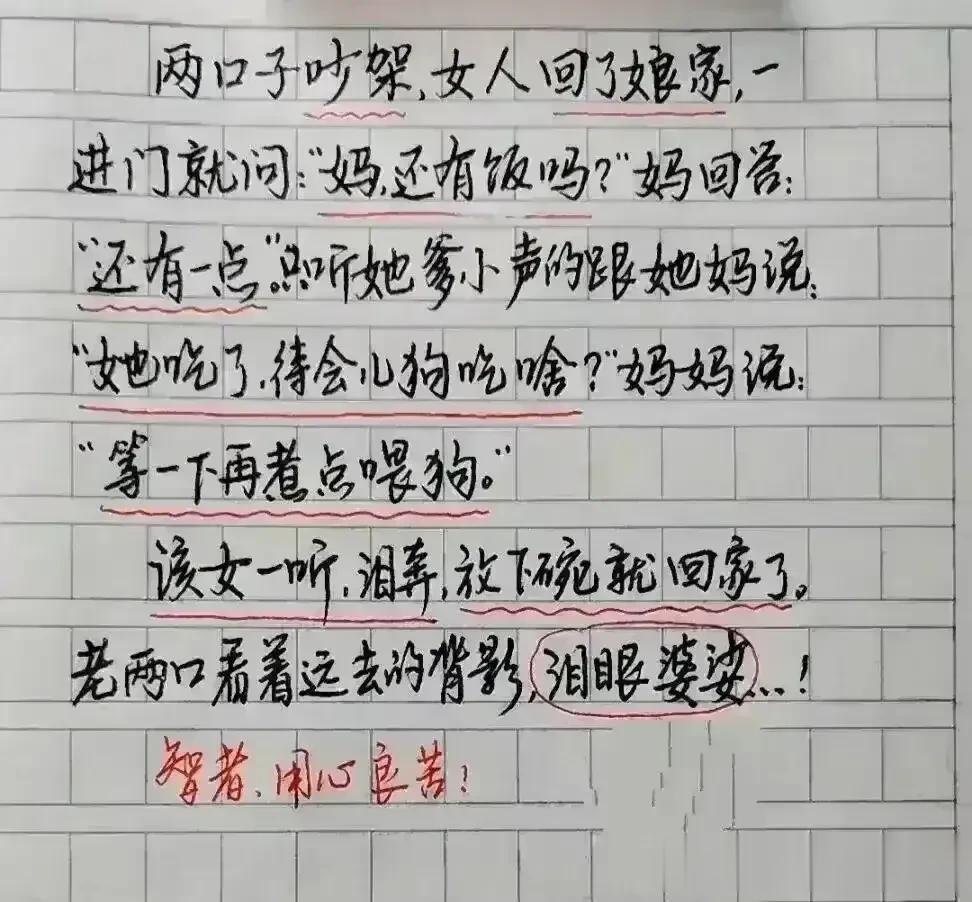 两口子吵架,女人回了娘家,一
进门就问:“妈,还有饭吗?”妈回答:
“还有一点”。只听她爹小声的跟她妈说:
“她吃了,待会儿狗吃啥?”妈妈说:
“等一下再煮点喂狗。”
该女一听,泪奔,放下碗就回家了。
老两口看着远去的背影,泪眼婆娑...!
智者,用心良苦!